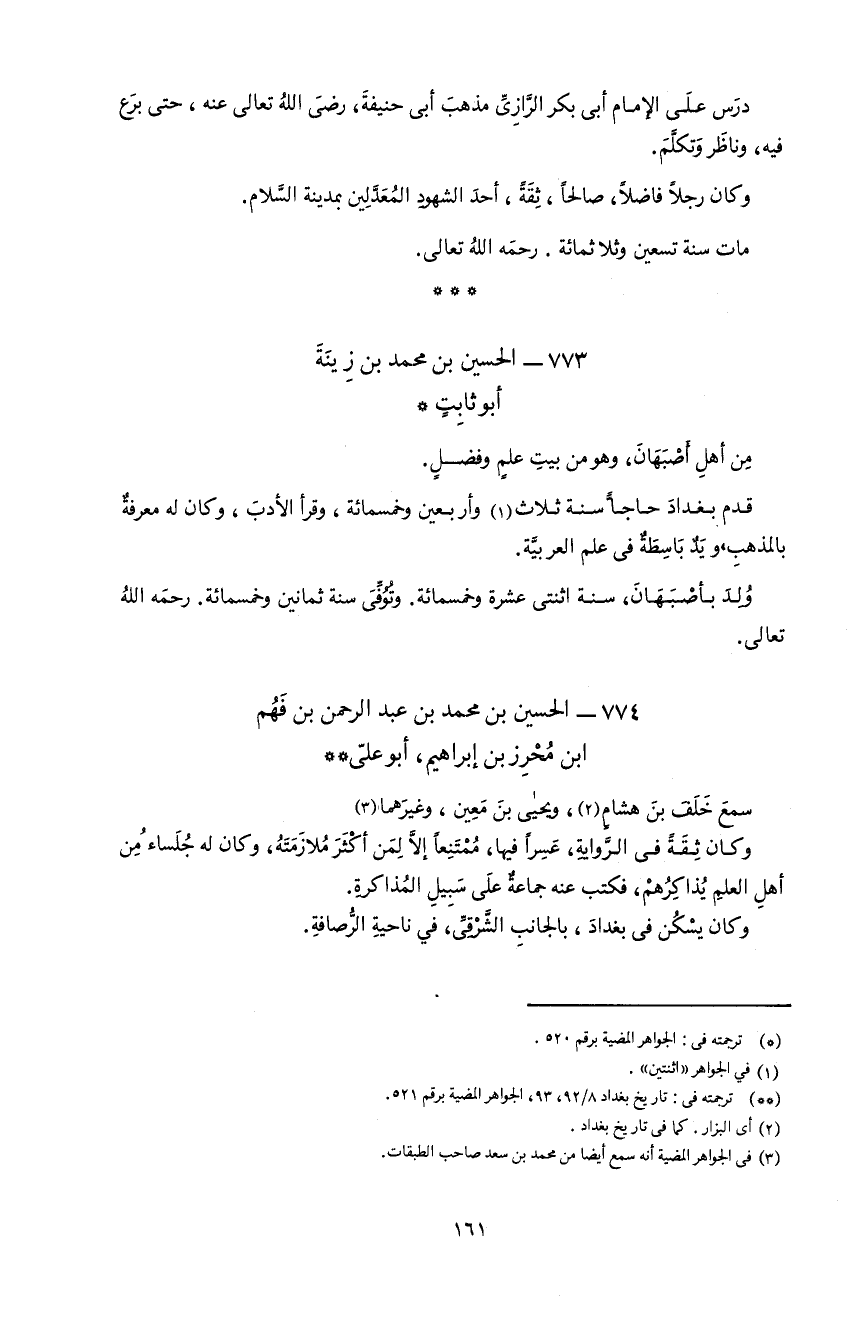 درَس علَى الإمام أبى بكر الرَّازِىِّ مذهبَ أبى حنيفةَ، رضىَ اللهُ تعالى عنه ، حتى برَع
فيه، وناظَر وَتكلَّمَ.
وكان رجلاً فاضلاً، صالحاً ، ثِقَةً ، أحدَ الشهودِ المُعَدَّلِين بمدينة السَّلام.
مات سنة تسعين وثلاثمائة . رحمَه اللهُ تعالى.
* * *
٧٧٣ ــ الحسين بن محمد بن زِينَةَ
أبو ثابِتٍ *
مِن أهلِ أَصْبَهَانَ، وهو من بيتِ علمٍ وفضلٍ.
قدم بغدادَ حاجاً سنة ثلاث(١) وأربعين وخمسمائة ، وقرأ الأدبَ ، وكان له معرفةٌ
بالمذهبِ،ويَدٌ بَاسِطَةٌ فى علم العربيَّة.
وُلِدَ بأصْبَهَانَ، سنة اثنتى عشرة وخمسمائة. وتُوُفِّىَ سنة ثمانين وخمسمائة. رحمَه اللهُ
تعالى.
٧٧٤ ــ الحسين بن محمد بن عبد الرحمن بن فَهُم
ابن مُحْرِز بن إبراهيم، أبو علىّ**
سمعَ خَلَفَ بنَ هشامٍ(٢) ، ويحيٰى بنَ مَعِين ، وغيرَهما(٣)
وكان ثِقَةً فى الرَّوايةِ، عَسِراً فيها، مُمْتَنِعاً إلاَّ لِمَن أكْثَرَ مُلازمَتَهُ، وكان له جُلَساءُ مِن
أهلِ العلمِ يُذاكِرُهمْ، فكتب عنه جماعةٌ علَى سَبِيلِ المُذاكرةِ.
وكان يسْكُن فى بغدادَ ، بالجانبِ الشَّرْقِىِّ، في ناحيةِ الرُّصافةِ.
(*) ترجمته فى : الجواهر المضية برقم ٥٢٠ .
(١) في الجواهر «اثنتين» .
(**) ترجمته فى : تاريخ بغداد ٩٢/٨، ٩٣، الجواهر المضية برقم ٥٢١.
(٢) أى البزار . كما فى تاريخ بغداد .
(٣) فى الجواهر المضية أنه سمع أيضا من محمد بن سعد صاحب الطبقات.
١٦١